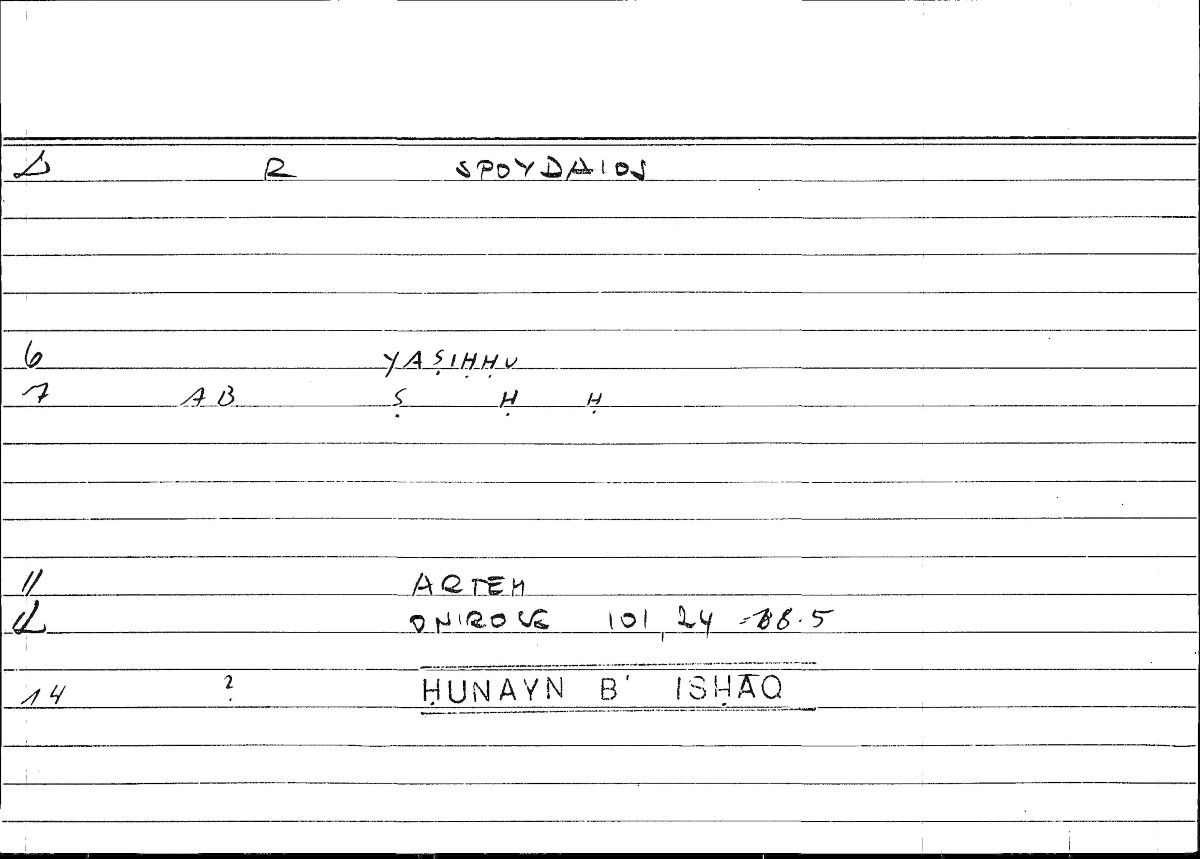 R SPOYDAIOS
6 YAṢIḤḤU
7 AB Ṣ Ḥ Ḥ
11 ARTEM
12 ONIROCE 101, 24 = 88.5
14 ? ḤUNAYN B' ISḤĀQ